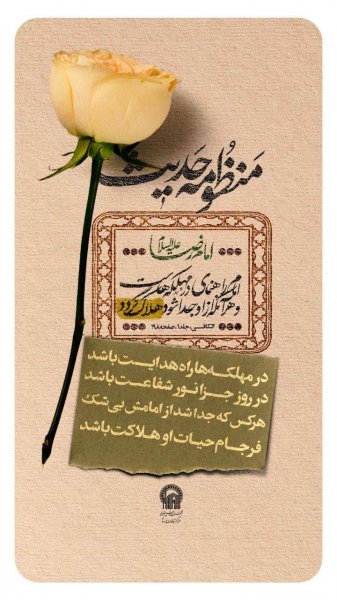 منظومه حدیث
امام رضا علیه السلام
امام راهنمای در مهلکه‌هاست
و هر آنکه از او جدا شود هلاک گردد
الکافی، جلد۱، صفحه۱۹۸
در مهلکه‌ها راه هدایت باشد
در روز جزا نور شفاعت باشد
هرکس که جدا شد از امامش بی‌شک
فرجام حیات او هلاکت باشد